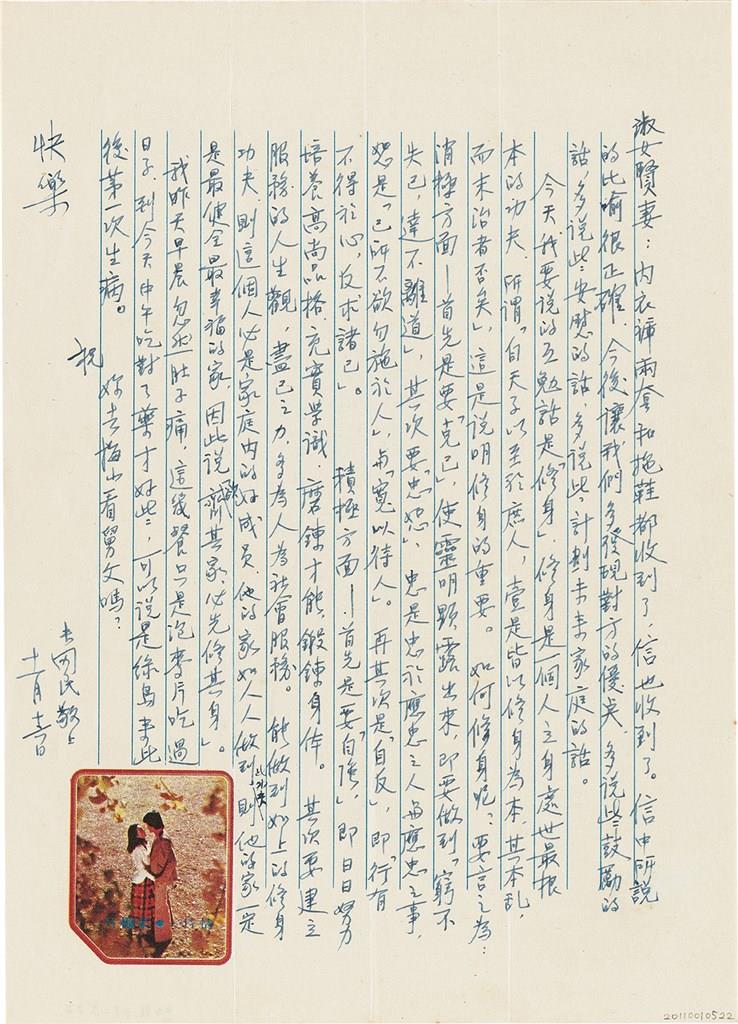 淑女賢妻：內衣褲兩套和拖鞋都收到了，信也收到了。信中所說
的比喻很正確，今後讓我們多發現對方的優点，多說些鼓勵的
話，多說些安慰的話，多說些計劃未來家庭的話。
今天我要說的互勉話是「修身」，修身是一個人立身處世最根
本的功夫，所謂「自天子以至於庶人，壹是皆以修身為本，其本亂，
而末治者否矣」，這是說明修身的重要。如何修身呢？要言之為：
消極方面—首先是要「克己」，使靈明顯露出來，即要做到「窮不
失己，達不離道」，其次要「忠恕」，忠是忠於應忠之人与應忠之事，
恕是「己所不欲勿施於人」，与「寬以待人」。再其次是「自反」，即「行有
不得於心，反求諸己」。積極方面—首先是要「自強」，即日日努力
培養高尚品格，充實學識，磨鍊才能，鍛鍊身体。其次要建立
服務的人生觀，盡己之力，多為人為社會服務。能做到如上的修身
功夫，則這個人必是家庭內的好成員，他的家如人人做到此功夫，則他的家一定
是最健全最幸福的家，因此說「欲齊其家，必先修其身」。
我昨天早晨忽然肚子痛，這幾餐只是泡麥片吃過
日子，到今天中午吃對了藥才好些，可以說是綠島來此
後第一次生病。妳去梅山看舅父嗎？
祝
快樂
夫四民敬上
十一月十六日
20110010522